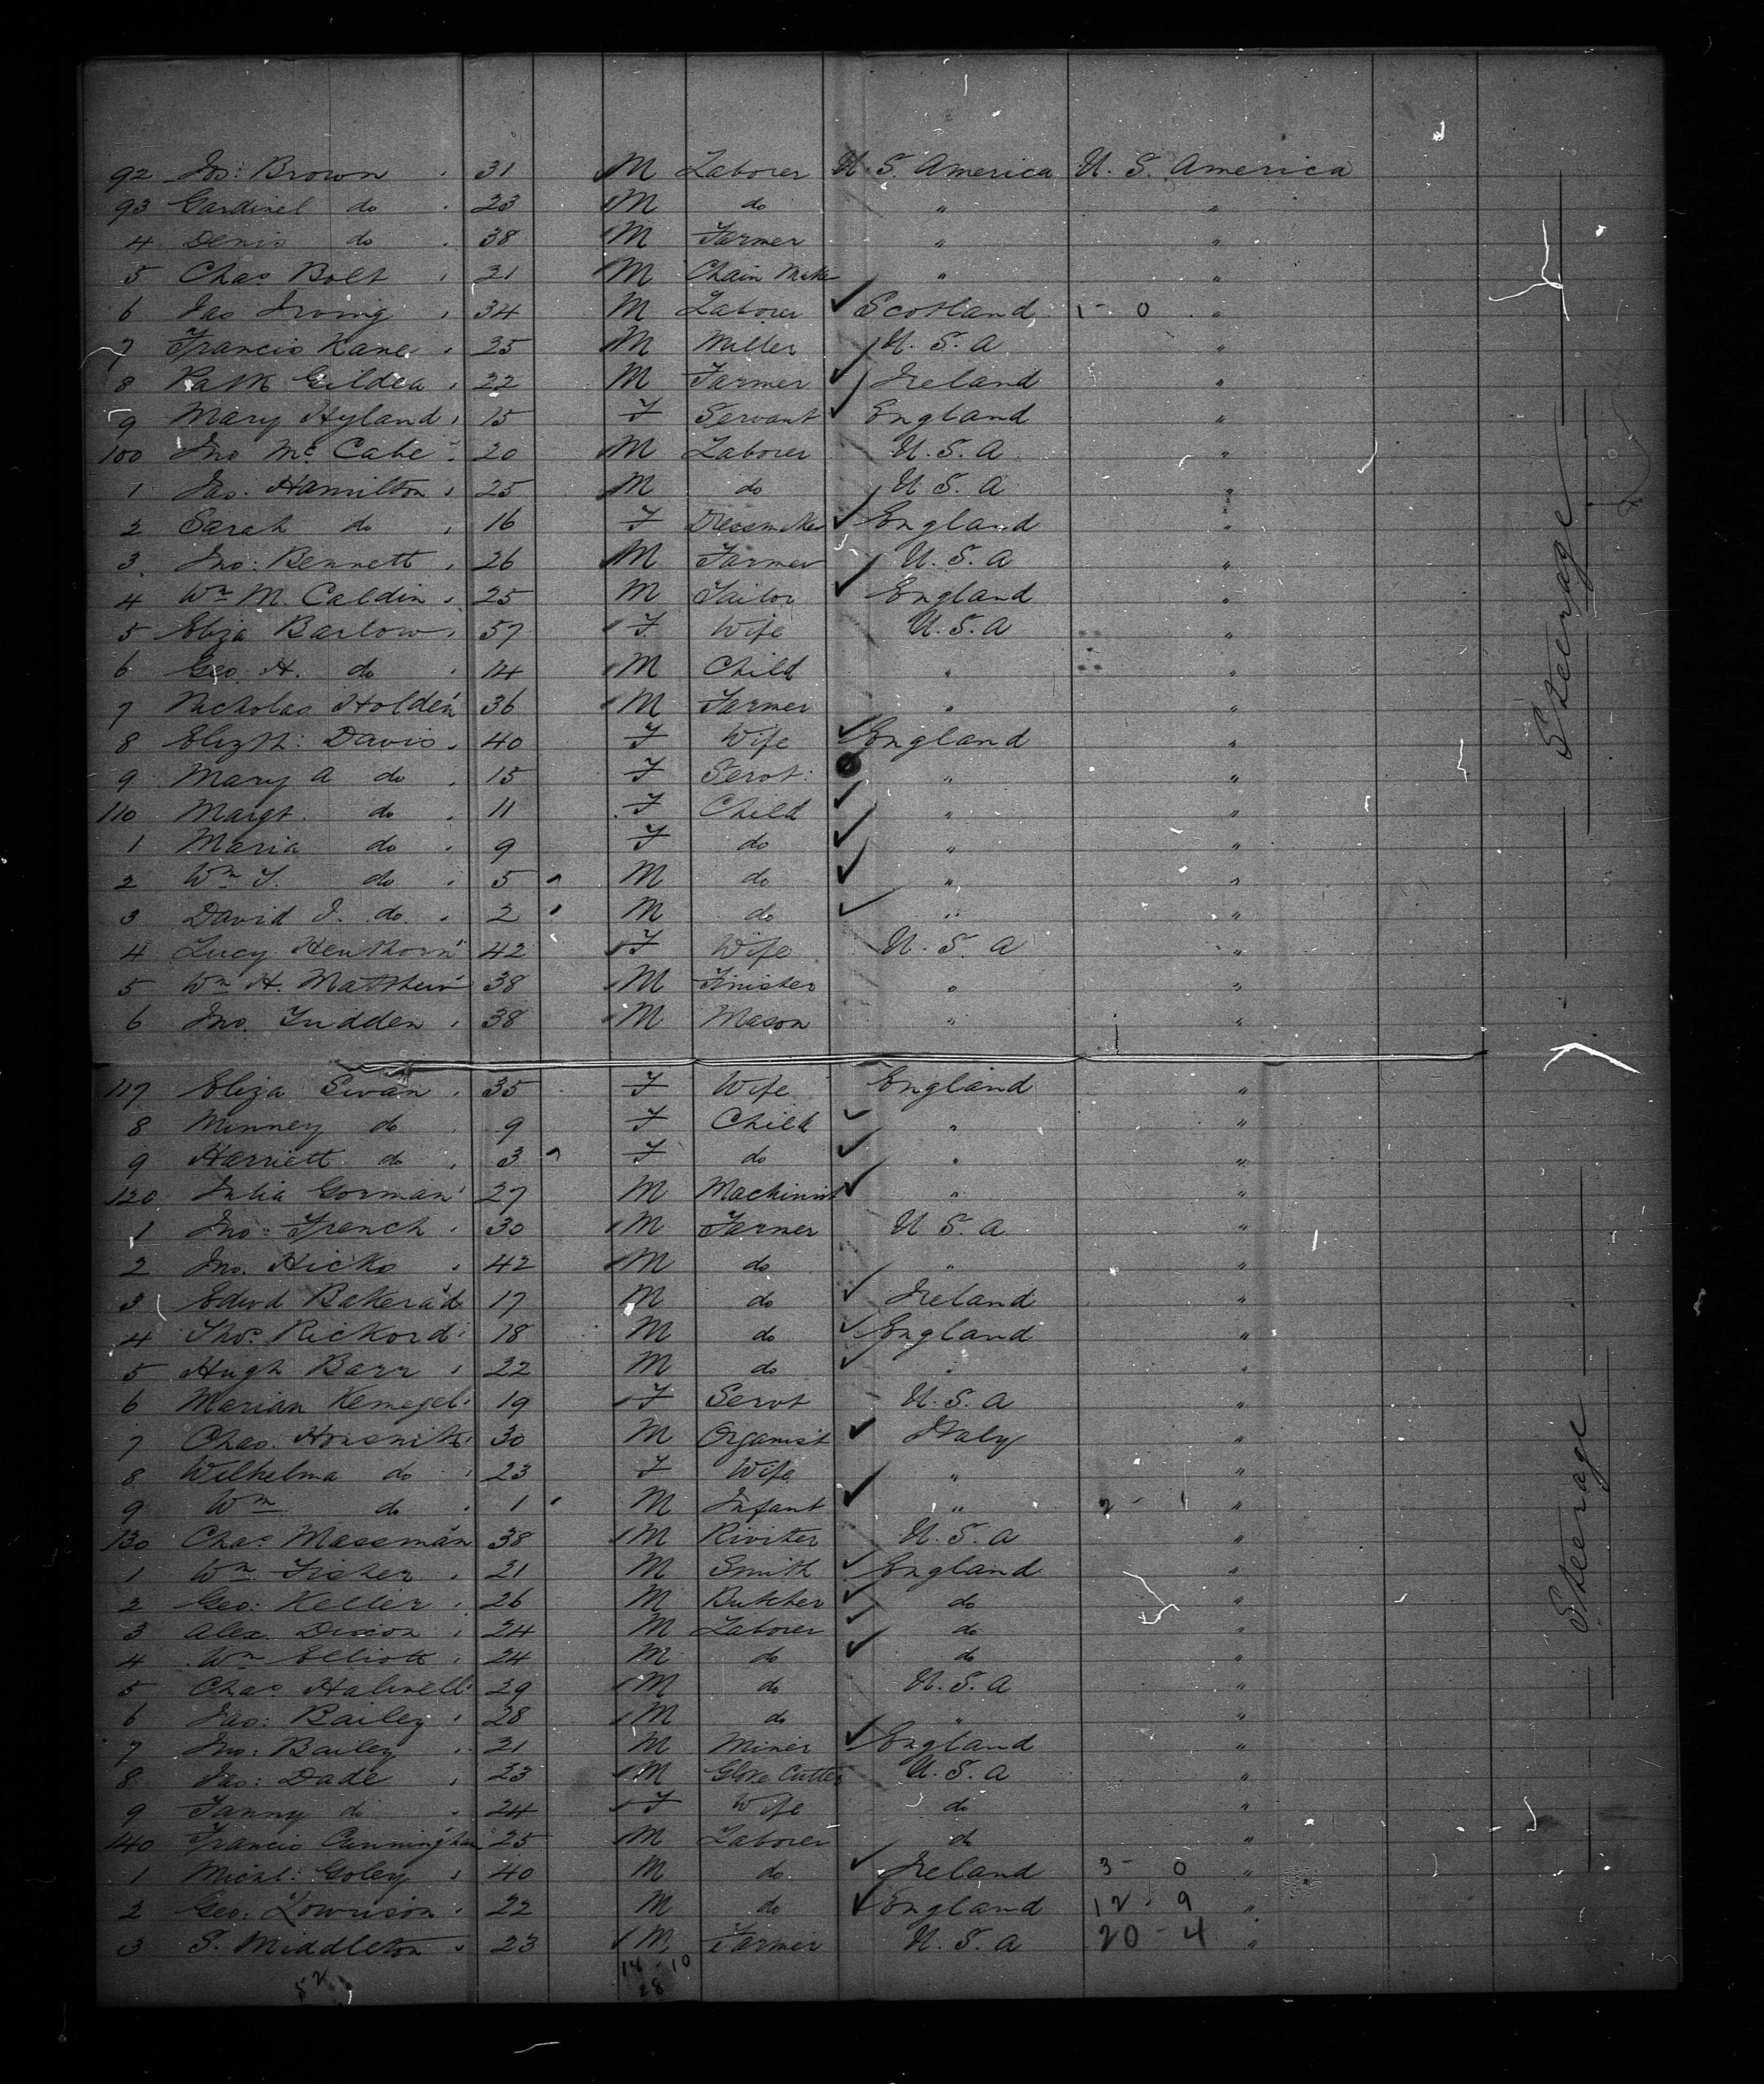 92 Jos: Brown 31 M Laborer U. S. America U. S. America
93 Gardinel do 23 M do " "
4 Denis do 38 M Farmer " "
5 Chas Bolt 21 M Chain Make " "
6 Jas Irving 34 M Laborer Scotland 1 - 0 "
7 Francis Kane 25 M Miller U. S. A "
8 Patk Gildea 22 M Farmer Ireland "
9 Mary Hyland 15 F Servant England "
100 Jno Mc Cabe 20 M Laborer U. S. A "
1 Jas. Hamilton 25 M do U. S. A "
2 Sarah do 16 F Dressmaker England "
3 Jno: Bennett 26 M Farmer U. S. A "
4 Wm M. Caldin 25 M Tailor England "
5 Eliza Barlow 57 F Wife U. S. A "
6 Geo. H. do 14 M Child " "
7 Nicholas Holden 36 M Farmer " "
8 Elizth: Davis 40 F Wife England "
9 Mary A do 15 F Servt: " "
110 Margt. do 11 F Child " "
1 Maria do 9 F do " "
2 Wm J. do 5 M do " "
3 David J. do 2 M do " "
4 Lucy Henthorn 42 F Wife U. S. A "
5 Wm H. Matthews 38 M Finisher " "
6 Jno. Tudden 38 M Mason " "
Steerage
117 Eliza Swan 35 F Wife England "
8 Minney do 9 F Child " "
9 Harriett do 3 F do " "
120 Julia Gorman 27 M Machinist " "
1 Jno: French 30 M Farmer U. S. A "
2 Jno. Hicks 42 M do " "
3 Edwd 17 M do Ireland "
4 Thos. Rickord 18 M do England "
5 Hugh Barr 22 M do " "
6 Marian 19 F Servt U. S. A "
7 Chas. 30 M Organist Italy "
8 Wilhelma do 23 F Wife " "
9 Wm do 1 M Infant " 2 - 1 "
130 Chas Massman 38 M Riviter U. S. A "
1 Wm Fisher 21 M Smith England "
2 Geo: Keller 26 M Butcher do "
3 Alex. Dixon 24 M Laborer do "
4 Wm Elliott 24 M do do "
5 Chas. Haliwell 29 M do U. S. A "
6 Jas: Bailey 28 M do " "
7 Jno: Bailey 21 M Miner England "
8 Jas: Dade 23 M Glove Cutter U. S. A "
9 Fanny do 24 F Wife do "
140 Francis Cunningham 25 M Laborer do "
1 Michl: Goley 40 M do Ireland 3 - 0 "
2 Geo: Lowrison 22 M do England 12 - 9 "
3 S. Middleton 23 M Farmer U. S. A 20 - 4 "
52 18 - 10
28
Steerage